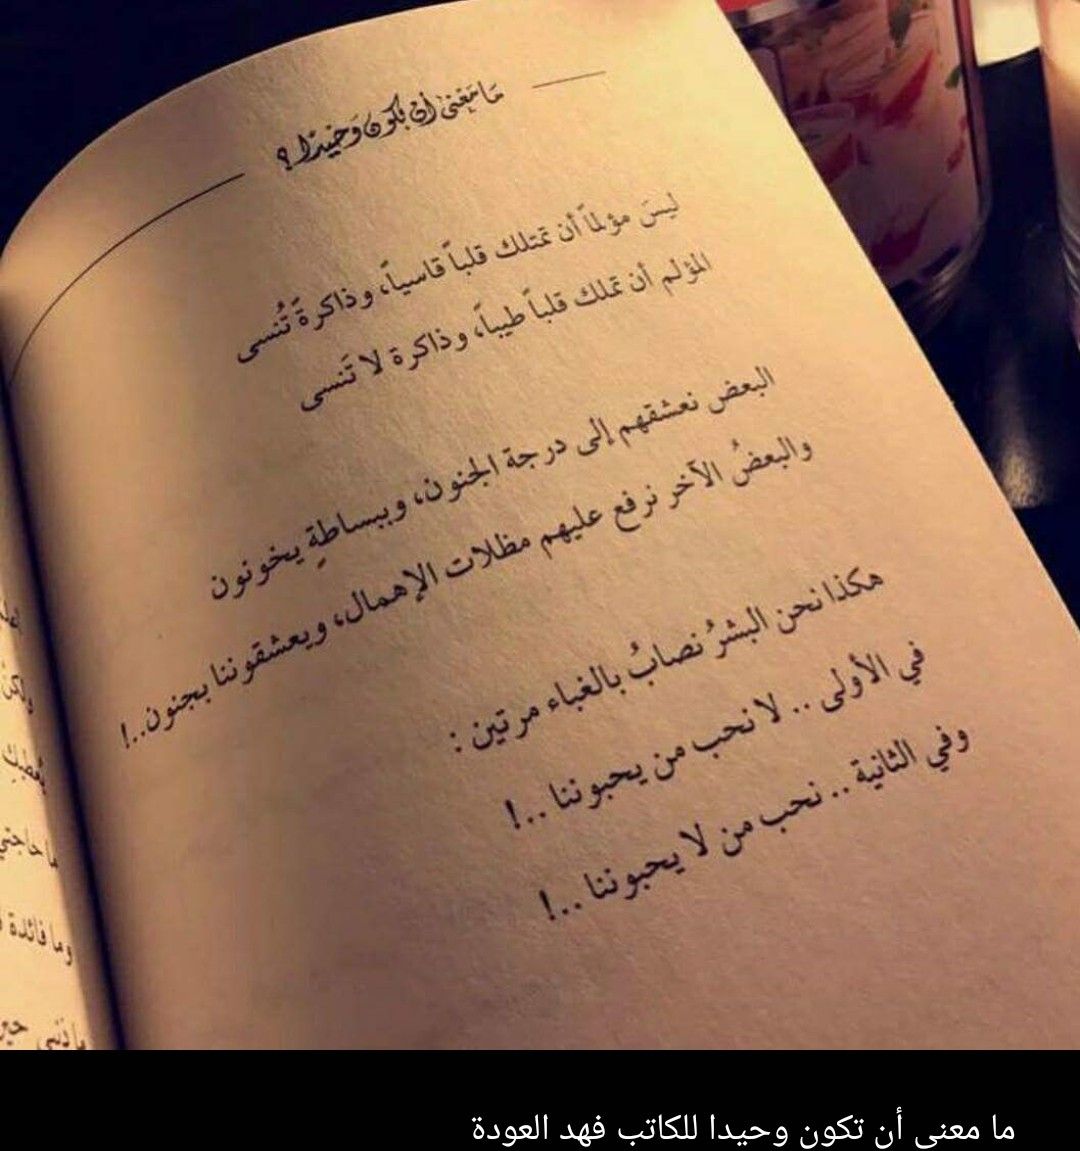 مَا مَعْنى أن تكون وَحيدًا ؟
ليسَ مؤلماً أن تمتلك قلباً قاسياً، وذاكرةً تُنسى
المؤلم أن تملك قلباً طيباً، وذاكرة لا تَنسى
البعض نعشقهم إلى درجة الجنون، وببساطةٍ يخونون
والبعضُ الآخر نرفع عليهم مظلات الإهمال، ويعشقوننا بجنون..!
هكذا نحن البشرُ نصابُ بالغباء مرتين :
في الأولى .. لا نحب من يحبوننا ..!
وفي الثانية .. نحب من لا يحبوننا ..!
وما فائدة
ما معنى أن تكون وحيدا للكاتب فهد العودة